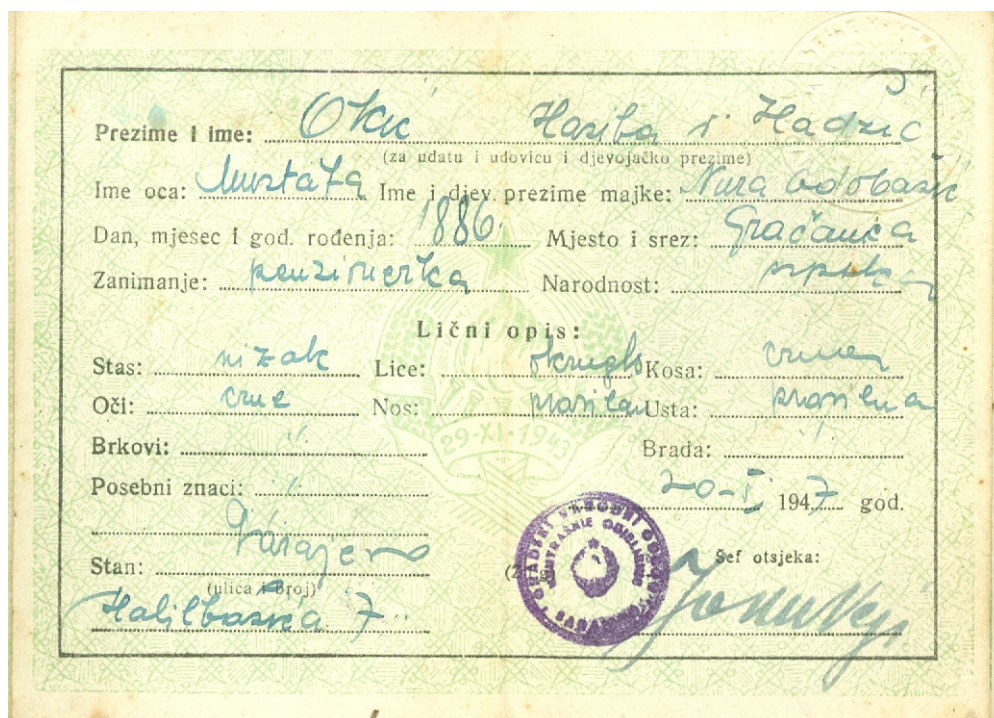 Prezime i ime: Okić Hasiba r. Hadžić
(za udatu i udovicu i djevojačko prezime)
Ime oca: Mustafa Ime i djev. prezime majke: Nura Odobašić
Dan, mjesec i god. rođenja: 1886. Mjesto i srez: Gračanica
Zanimanje: penzinerka Narodnost:
Lični opis:
Stas: nizak Lice: okruglo Kosa: crna
Oči: crne Nos: pravilan Usta: pravilna
Brkovi: // Brada: //
Posebni znaci: //
20-I 1947 god.
Stan: Sarajevo
(ulica i broj)
Halilbašića 7.
Šef otsjeka:
29·XI·1943
GRADSKI NARODNI ODBOR